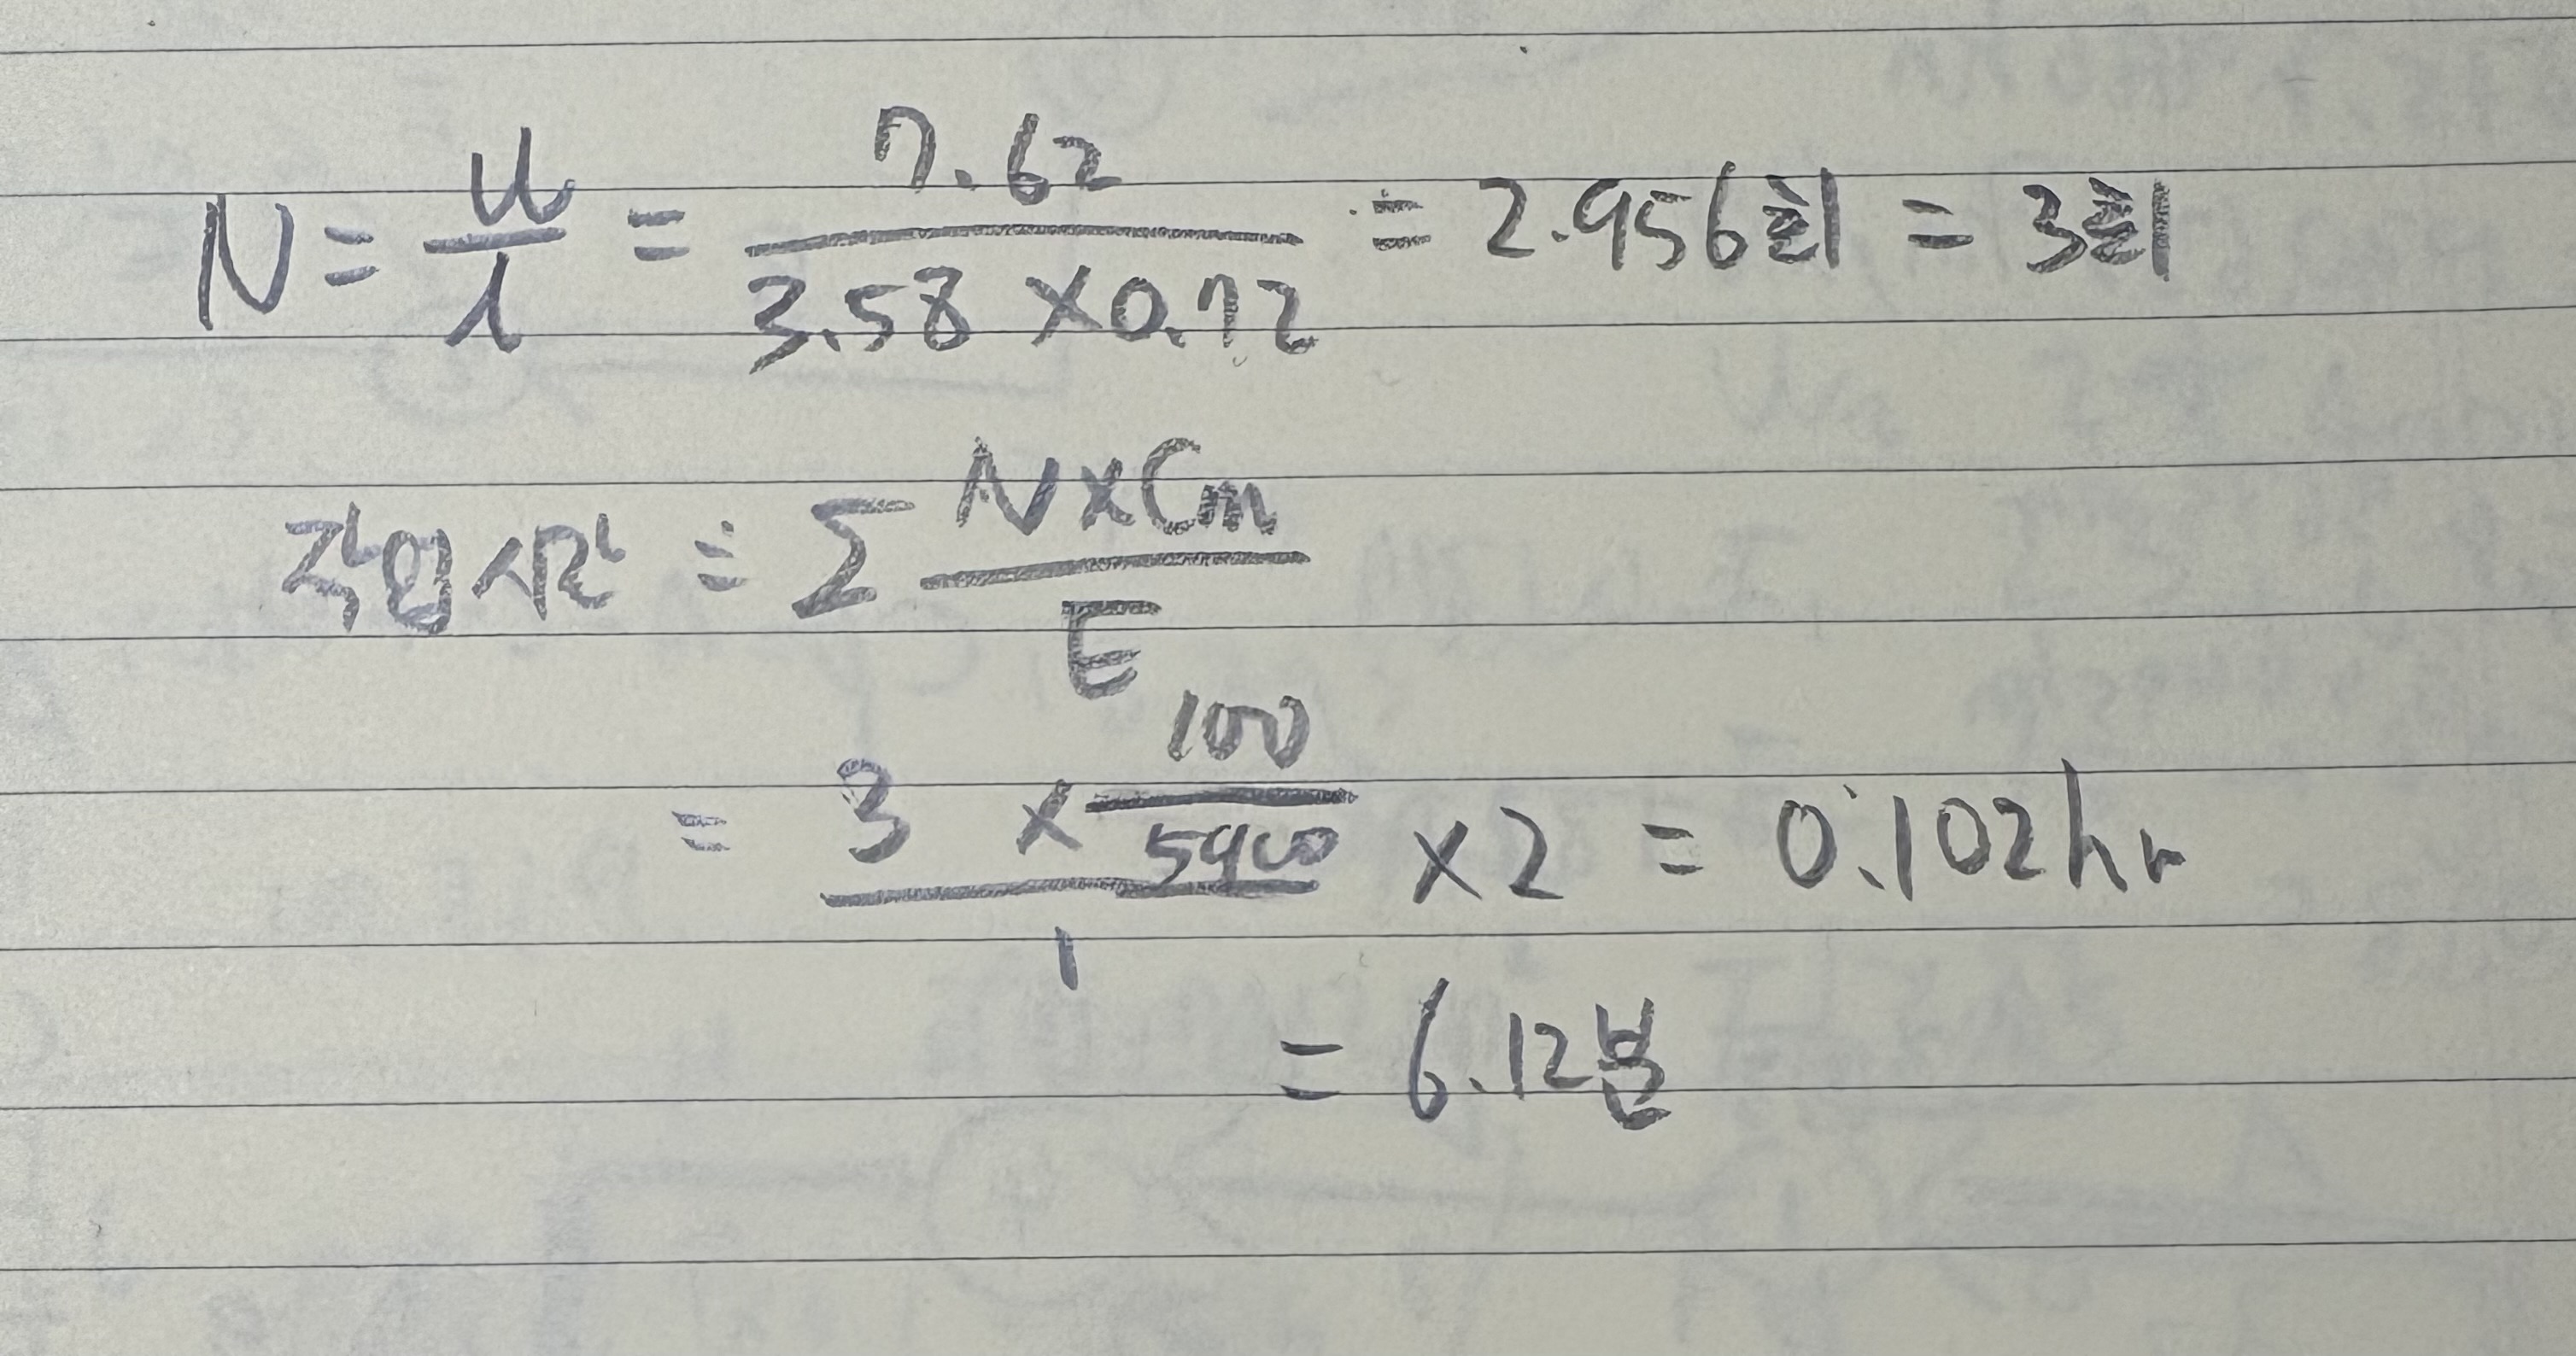 N = W/l = 7.62/(3.58 × 0.72) ≒ 2.956회 = 3회
작업시간 = Σ (N×Cm)/E
= (3 × 100/5900)/1 × 2 = 0.102hr
= 6.12분